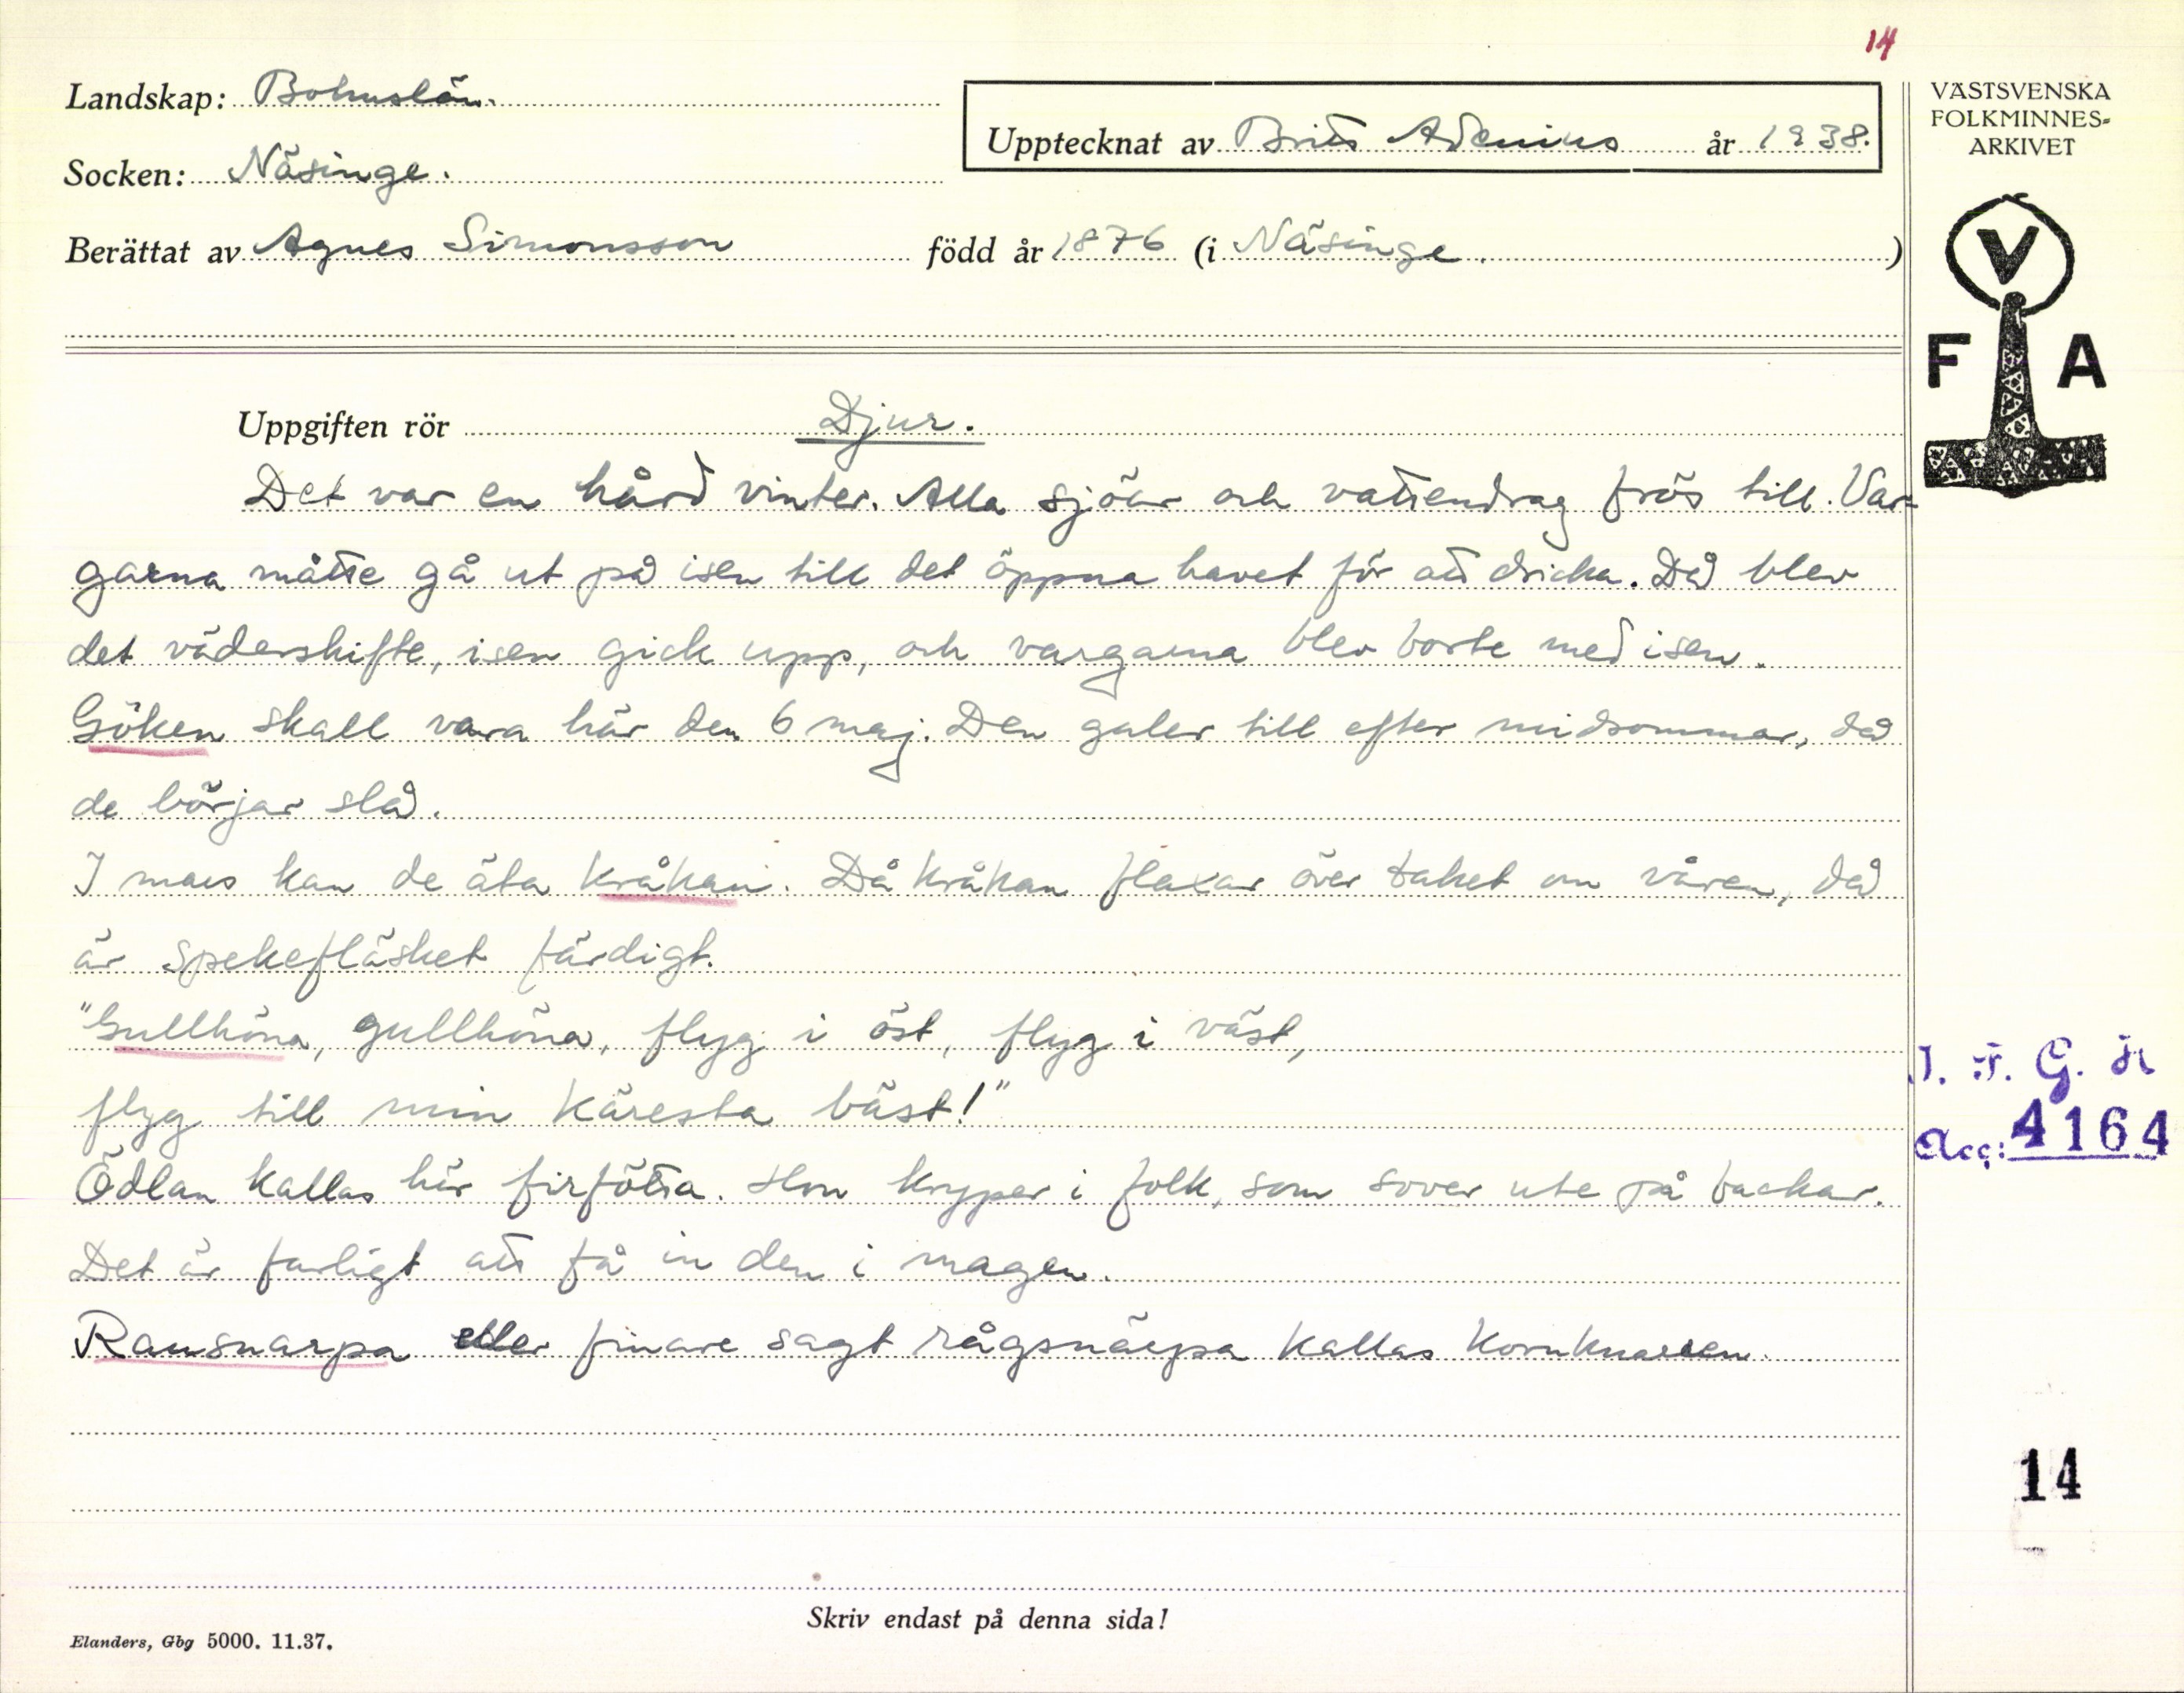 14
Landskap: Bohuslän.
Upptecknat av Britt Adenius år 1938.
Socken: Näsinge.
Berättat av Agnes Simonsson född år 1876 (i Näsinge.)
VÄSTSVENSKA
FOLKMINNES-
ARKIVET
V
F A
Uppgiften rör Djur.
Det var en hård vinter. Alla sjöar och vattendrag frös till. Var-
garna måtte gå ut på isen till det öppna havet för att dricka. Då blev
det väderskifte, isen gick upp, och vargarna blev borte med isen.
Göken skall vara här den 6 maj. Den galer till efter midsommar, då
de börjar slå.
I mars kan de äta kråkan. Då kråkan flaxar över taket om våren, då
är spekefläsket färdigt.
"Gullhöna, gullhöna, flyg i öst, flyg i väst,
flyg till min käresta bäst!"
Ödlan kallas här firfötta. Hon kryper i folk, som sover ute på backar.
Det är farligt att få in den i magen.
Rausnarpa eller finare sagt rågsnärpa kallas kornknarren.
I. F. G. H
Acc: 4164
14
Skriv endast på denna sida!
Elanders, Gbg 5000. 11.37.